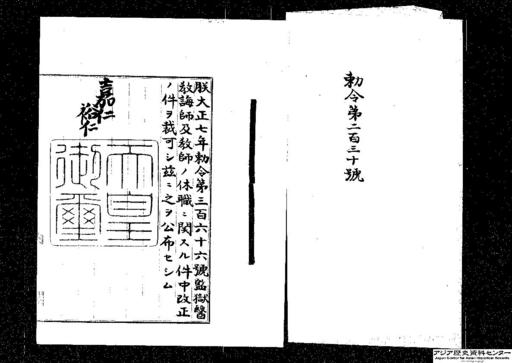 勅令第二百三十號
朕大正七年勅令第三百六十六號監獄醫
教誨師及教師ノ休職ニ関スル件中改正
ノ件ヲ裁可シ茲ニ之ヲ公布セシム
嘉仁
裕仁
天皇
御璽
アジア歴史資料センター
Japan Center for Asian Historical Records